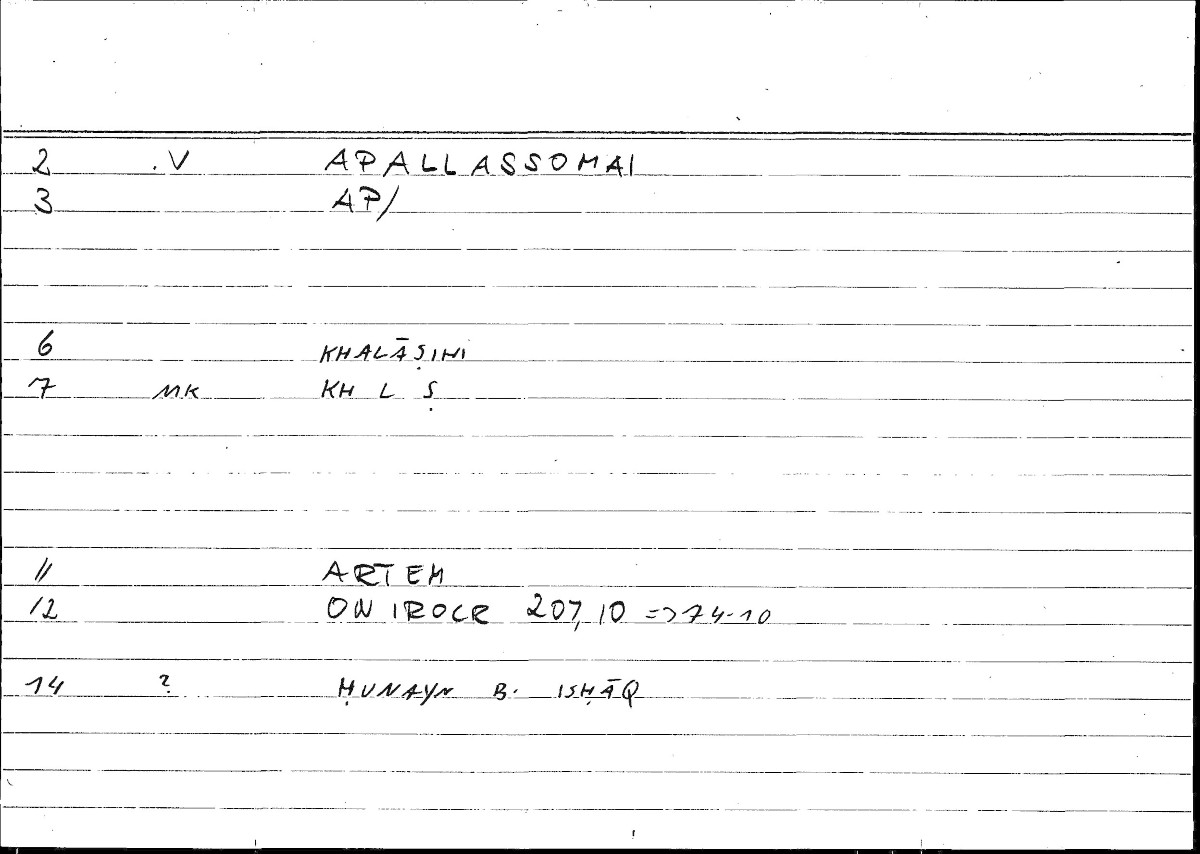 2 .V APALLASSOMAI
3 AP/
6 KHALĀṢINI
7 MK KH L Ṣ
11 ARTEM
12 ONIROCR 207,10 => 74-10
14 ? ḤUNAYN B. ISḤĀQ